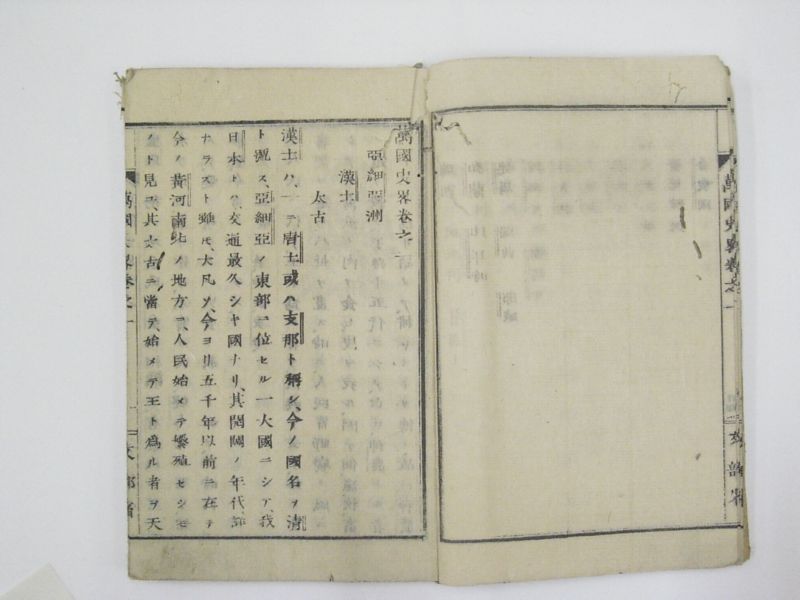 萬國史畧卷之一
文部省
萬國史畧卷之一
亞細亞洲
漢土
太古
漢土ハ、一ニ唐土或ハ支那ト稱シ、今ノ國名ヲ清
ト號ス、亞細亞ノ東部ニ位セル一大國ニシテ、我
日本トハ、交通最久シキ國ナリ、其開國ノ年代、詳
ナラスト雖モ、大凡ソ、今ヨリ五千年以前ニ在テ
今ノ黄河南北ノ地方ニ、人民始メテ繁殖セシモ
ノト見ユ、其太古ニ當テ、始メテ王ト爲ル者ヲ天
萬國史畧卷之一
一
文部省